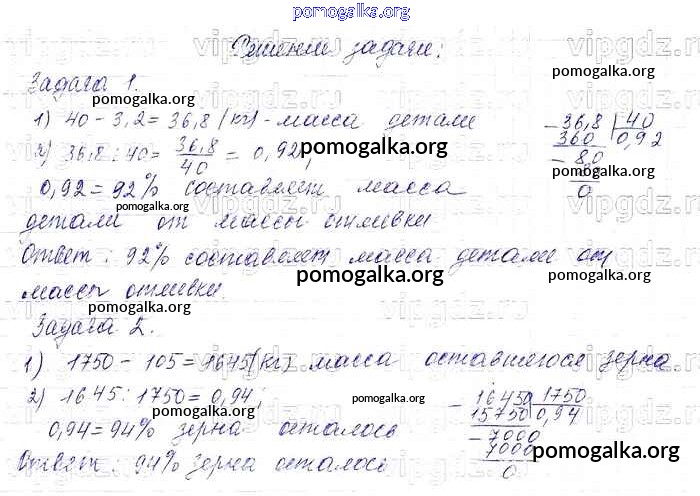 pomogalka.org
Решения задачи:
Задача 1.
1) 40 - 3,2 = 36,8 (кг) - масса детали
2) 36,8 : 40 = 36,8/40 = 0,92;
0,92 = 92% составляет масса
детали от массы отливки
Ответ: 92% составляет масса детали от
массы отливки.
36,8 | 40
360 | 0,92
- 80
80
0
Задача 2.
1) 1750 - 105 = 1645 (кг) масса оставшегося зерна
2) 1645 : 1750 = 0,94;
0,94 = 94% зерна осталось
Ответ: 94% зерна осталось
16450 | 1750
15750 | 0,94
- 7000
7000
0
pomogalka.org
pomogalka.org
pomogalka.org
pomogalka.org
pomogalka.org
pomogalka.org
pomogalka.org
pomogalka.org
pomogalka.org
pomogalka.org
pomogalka.org